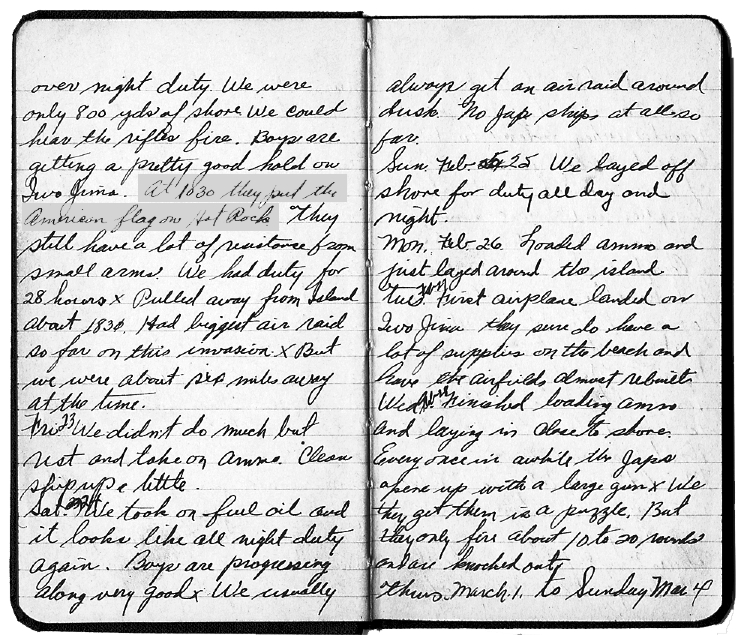 over night duty. We were
only 800 yds of shore We could
hear the rifles fire. Boys are
getting a pretty good hold on
Iwo Jima. At 1030 they put the
American flag on Hot Rock They
still have a lot of resistance from
small arms. We had duty for
28 hours x Pulled away from Island
about 1830. Had biggest air raid
so far on this invasion. x But
we were about six miles away
at the time.
Fri 23 We didn't do much but
rest and take on ammo. Clean
ship up a little.
Sat 24 We took on fuel oil and
it looks like all night duty
again. Boys are progressing
along very good x We usually
always get an air raid around
dusk. No Jap ships at all so
far.
Sun. Feb. 25 We layed off
shore for duty all day and
night.
Mon. Feb 26. Loaded ammo and
just layed around the island
Tues. First airplane landed on
Iwo Jima they sure do have a
lot of supplies on the beach and
have the airfields almost rebuilt
Wed Finished loading ammo
and laying in close to shore.
Every once in awhile the Japs
opens up with a large gun x We
they get them is a puzzle. But
they only fire about 10 to 20 rounds
and are knocked out
Thurs. March. 1. to Sunday Mar 4